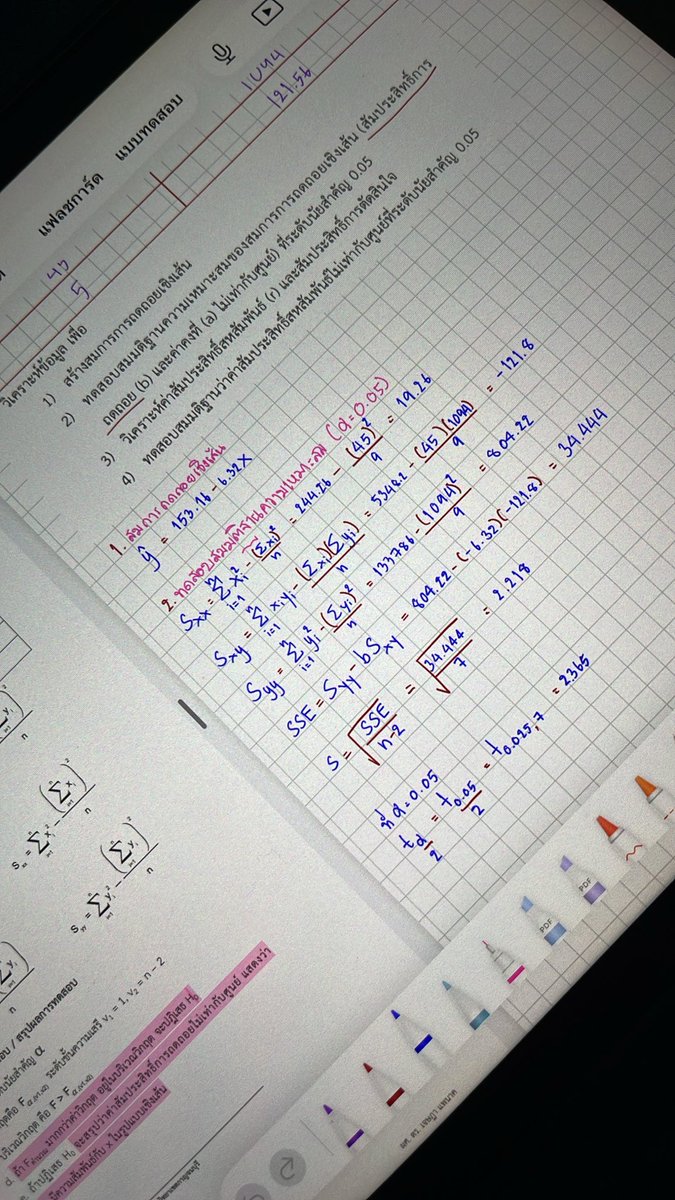 แฟลชการ์ด แบบทดสอบ
45 1094
5 121.56
วิเคราะห์ข้อมูล เพื่อ
1) สร้างสมการการถดถอยเชิงเส้น
2) ทดสอบสมมติฐานความเหมาะสมของสมการการถดถอยเชิงเส้น (สัมประสิทธิ์การ
ถดถอย (b) และค่าคงที่ (a) ไม่เท่ากับศูนย์) ที่ระดับนัยสำคัญ 0.05
3) วิเคราะห์ค่าสัมประสิทธิ์สหสัมพันธ์ (r) และสัมประสิทธิ์การตัดสินใจ
4) ทดสอบสมมติฐานว่าค่าสัมประสิทธิ์สหสัมพันธ์ไม่เท่ากับศูนย์ที่ระดับนัยสำคัญ 0.05
1. สมการถดถอยเชิงเส้น
ŷ = 153.16 - 6.32x
2. ทดสอบสมมติฐานความเหมาะสม (α=0.05)
Sxx = Σxi² - (Σxi)²/n = 244.26 - (45)²/9 = 19.26
Sxy = Σxiyi - (Σxi)(Σyi)/n = 5348.2 - (45)(1094)/9 = -121.8
Syy = Σyi² - (Σyi)²/n = 133786 - (1094)²/9 = 804.22
SSE = Syy - bSxy = 804.22 - (-6.32)(-121.8) = 34.444
S = √(SSE/n-2) = √(34.444/7) = 2.218
ที่ α = 0.05
tα/2 = t0.05/2 = t0.025,7 = 2.365
Sxx = Σxi² - (Σxi)²/n
Syy = Σyi² - (Σyi)²/n
สรุปผลการทดสอบ
ระดับขั้นความเสรี v₁ = 1, v₂ = n - 2
บริเวณวิกฤต คือ F > F
d. ถ้า Fคำนวณ มากกว่าค่าวิกฤต อยู่ในบริเวณวิกฤต จะปฏิเสธ H₀
ถ้าปฏิเสธ H₀ จะสรุปว่าค่าสัมประสิทธิ์การถดถอยไม่เท่ากับศูนย์ แสดงว่า
มีความสัมพันธ์กับ x ในรูปแบบเชิงเส้น
PDF
PDF